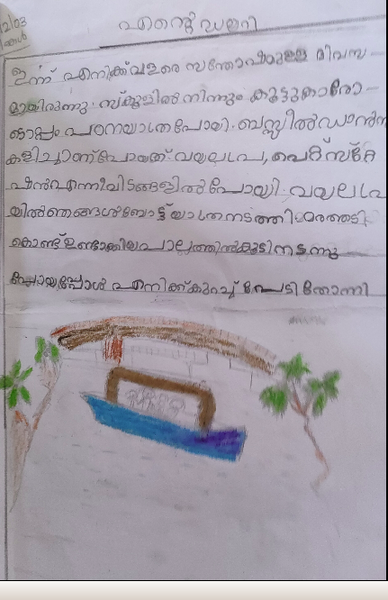 12/03
എന്റെ ഡയറി
ഇന്ന് എനിക്ക് വളരെ സന്തോഷമുള്ള ദിവസ
മായിരുന്നു. സ്കൂളിൽ നിന്നും കൂട്ടുകാരോ
ടൊപ്പം പഠനയാത്രപോയി. ബസ്സിൽ ഡാൻസ്
കളിച്ചാണ് പോയത്. വയലപ്ര,
ഷൻ എന്നീവിടങ്ങളിൽ പോയി. വയലപ്ര
യിൽ ഞങ്ങൾ ബോട്ട് യാത്ര നടത്തി. മരത്തടി
കൊണ്ട് ഉണ്ടാക്കിയ പാലത്തിൽകൂടി നടന്നു
പോയപ്പോൾ എനിക്ക് കുറച്ച് പേടി തോന്നി